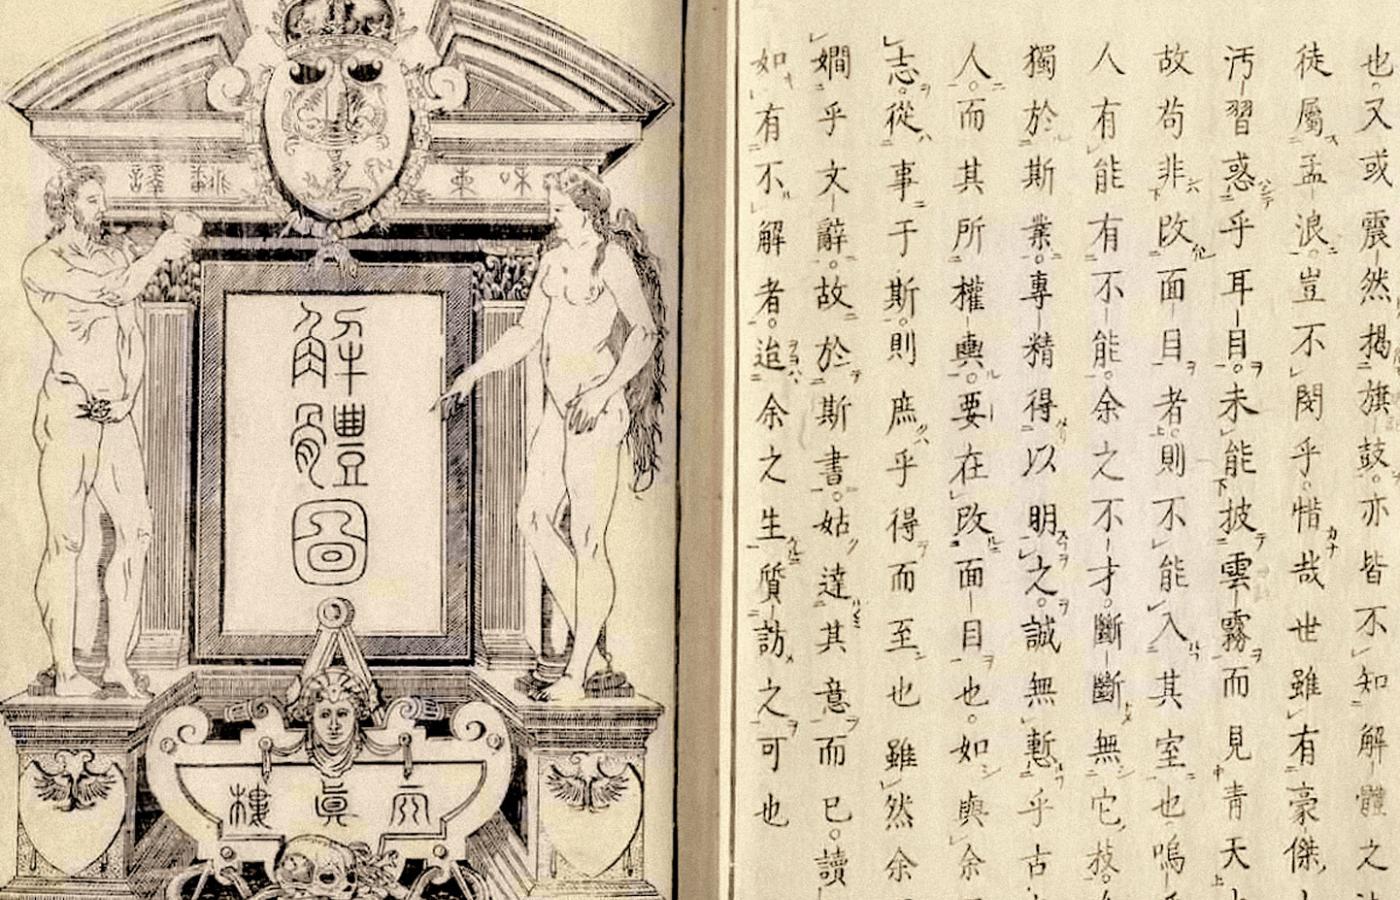 也。又或震然揭旗鼓。亦皆不知解體之
徒屬孟浪。豈不閔乎。惜哉世雖有豪傑,
汚習惑乎耳目。未能披雲霧而見青天
故苟非改面目者。則不能入其室也嗚
人有能有不能。余之不才。斷斷無它,技。
獨於斯業。專精得以明之。誠無慙乎古
人。而其所權輿。要在改面目也。如與余
志。從事于斯。則庶乎得而至也雖然余
嫺乎文辭。故於斯書。姑達其意而已。讀
如有不解者。迨余之生質訪之可也
解體圖
天眞樓